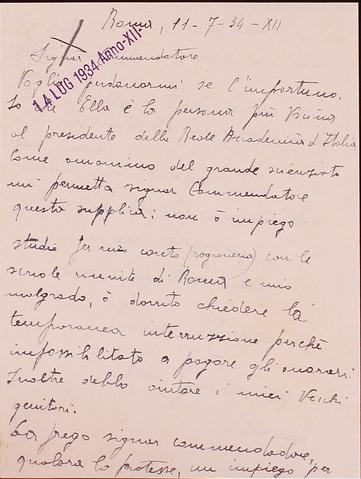 Roma, 11-7-34-XII
Signor Commendatore
14 LUG 1934 Anno-XII-
Voglia perdonarmi se l'importuno.
So che Ella è la persona più vicina
al presidente della Reale Accademia d'Italia
Come omonimo del grande scienziato
mi permetta signor Commendatore
questa supplica: non ò impiego
studio per mio conto (ragioneria) con le
scuole riunite di Roma e mio
malgrado, ò dovuto chiedere la
temporanea interruzione perchè
impossibilitato a pagare gli onorari
Inoltre debbo aiutare i miei vecchi
genitori.
La prego signor commendatore,
qualora lo potesse, un impiego per